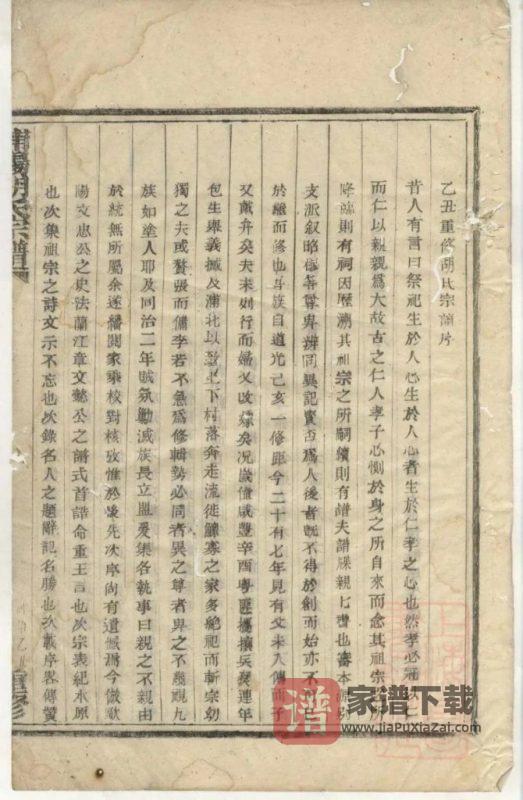 乙丑重修胡氏宗譜序
昔人有言曰祭祀生於人心生於人心者生於仁孝之心也然孝必冠以仁
而仁以親親為大故古之仁人孝子必惻於身之所自來而念其祖宗所
降臨則有祠因歷溯其祖宗之所嗣續則有譜夫譜牒親上

支派叙昭穆等尊卑辨同異記實否為人後者既不得於創而始亦不
於繼而修也吾族自道光己亥一修距今二十有七年見有父未入傳而子
又歲弁矣夫未幾則行而婦又改嫁矣況歲值咸豐辛酉粵匪擾攘兵燹連年
包生舉義撼及浦北以致上下村落奔走流徙鰥寡之家多絕祀而斬宗
獨之夫或贅張而傭李若不急為修輯勢必同者異之尊者卑之不幾視九
族如塗人耶及同治二年賊氛勦滅族長立盟爰集各執事曰親之不親由
於統無所屬余遂繙閱家乘校對核攷惟於後先次序尚有遺憾焉今倣歐
陽文忠公之史法蘭江章文懿公之譜式首誥命重王言也次宗表紀水原
也次集祖宗之詩文示不忘也次錄名人之題辭記名勝也次載序畧傳贊
胡氏宗譜
重修
譜
家谱下载
www.jiaPuXiaZai.com